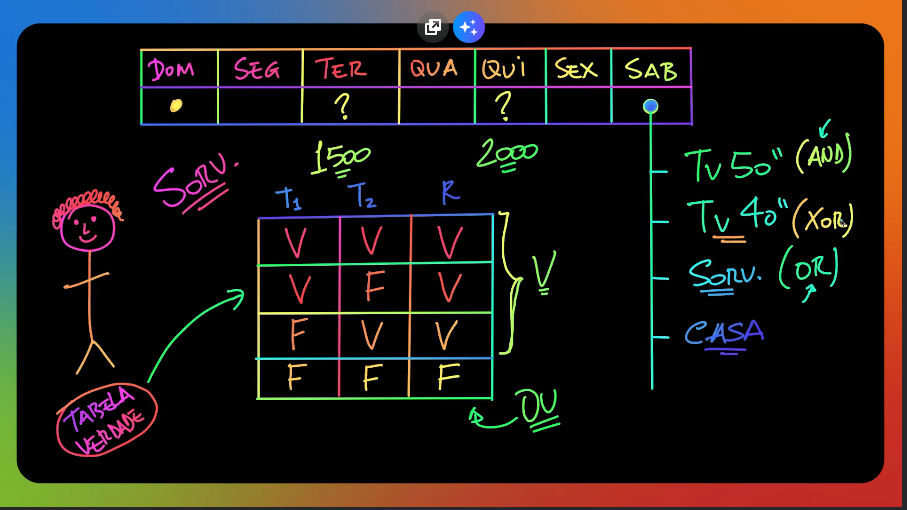 DOM SEG TER QUA QUI SEX SAB
? ?
1500 2000
SORV.
T1 T2 R
V V V
V F V
F V V
F F F
V
OU
TABELA
VERDADE
TV 50" (AND)
TV 40" (XOR)
SORV. (OR)
CASA